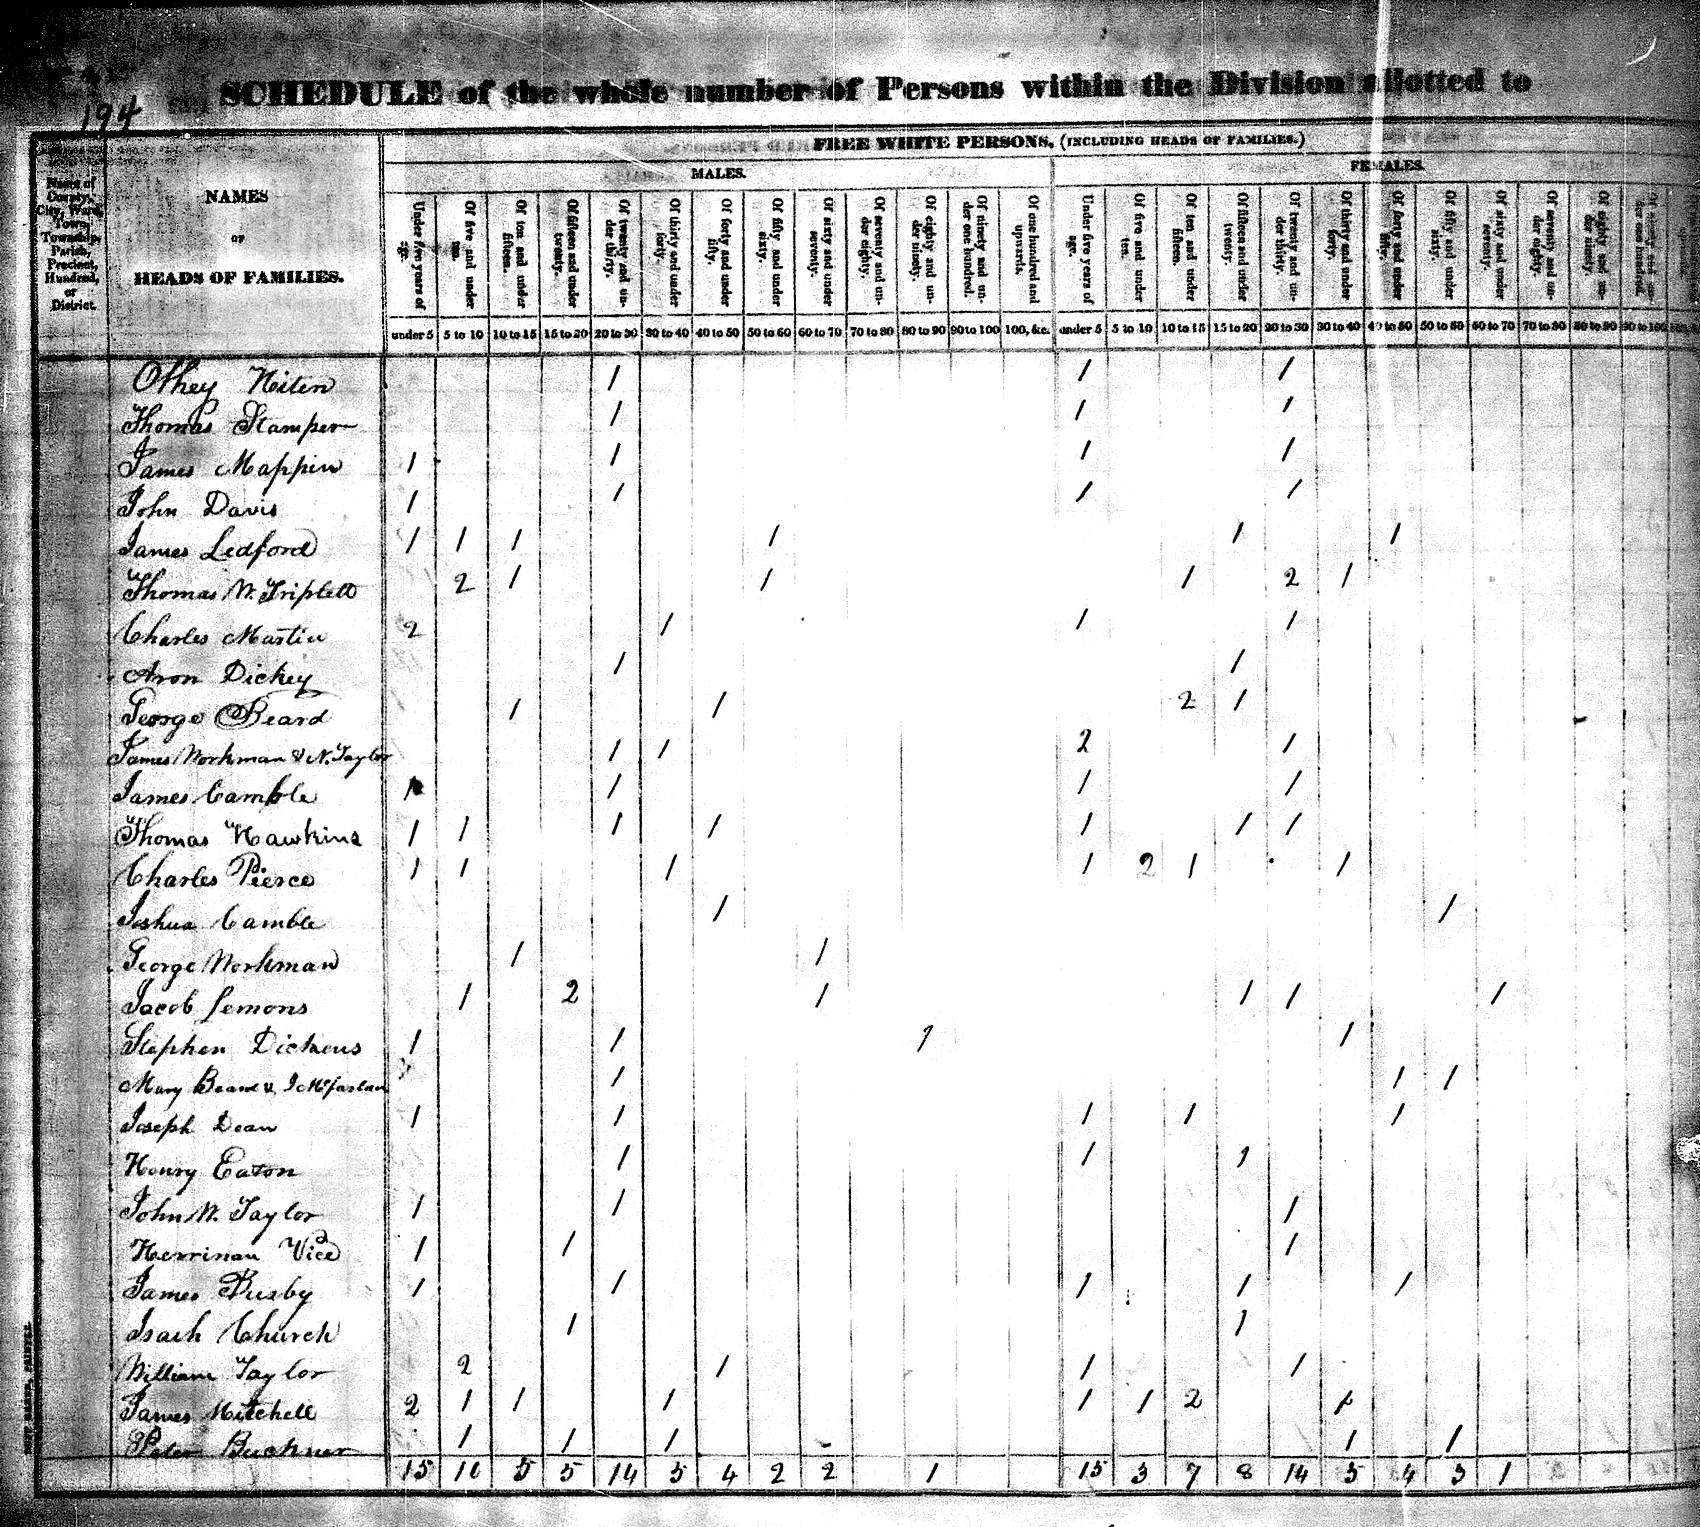 194
SCHEDULE of the whole number of Persons within the Division allotted to
FREE WHITE PERSONS, (INCLUDING HEADS OF FAMILIES.)
MALES.
FEMALES.
Name of County, City, Ward, Town, Township, Parish, Precinct, Hundred, or District.
NAMES
OF
HEADS OF FAMILIES.
Under five years of age. Of five and under ten. Of ten and under fifteen. Of fifteen and under twenty. Of twenty and under thirty. Of thirty and under forty. Of forty and under fifty. Of fifty and under sixty. Of sixty and under seventy. Of seventy and under eighty. Of eighty and under ninety. Of ninety and under one hundred. Of one hundred and upwards. Under five years of age. Of five and under ten. Of ten and under fifteen. Of fifteen and under twenty. Of twenty and under thirty. Of thirty and under forty. Of forty and under fifty. Of fifty and under sixty. Of sixty and under seventy. Of seventy and under eighty. Of eighty and under ninety. Of ninety and under one hundred.
under 5 5 to 10 10 to 15 15 to 20 20 to 30 30 to 40 40 to 50 50 to 60 60 to 70 70 to 80 80 to 90 90 to 100 100, &c. under 5 5 to 10 10 to 15 15 to 20 20 to 30 30 to 40 40 to 50 50 to 60 60 to 70 70 to 80 80 to 90 90 to 100
1 1 1
Thomas Stamper 1 1 1
James Mappin 1 1 1 1
John Davis 1 1 1 1
James Ledford 1 1 1 1 1 1
Thomas W. Triplett 2 1 1 1 2 1
Charles Martin 2 1 1 1
Aron Dickey 1 1
George Beard 1 1 2 1
James Workman & N. Taylor 1 1 2 1
James Camble 1 1 1 1
Thomas Hawkins 1 1 1 1 1 1 1
Charles Pierce 1 1 1 1 2 1 1
Joshua Camble 1 1
George Workman 1 1
Jacob Lemons 1 2 1 1 1 1
Stephen Dickens 1 1 1 1
Mary Beard & J McFarlan 1 1 1
Joseph Dean 1 1 1 1 1
Henry Eaton 1 1 1
John W. Taylor 1 1 1
Herriman Vice 1 1 1
James Busby 1 1 1 1 1
Isach Church 1 1
William Taylor 2 1 1 1
James Mitchell 2 1 1 1 1 1 2 1
Peter Buckner 1 1 1 1 1
15 10 5 5 14 5 4 2 2 1 15 3 7 8 14 5 4 3 1